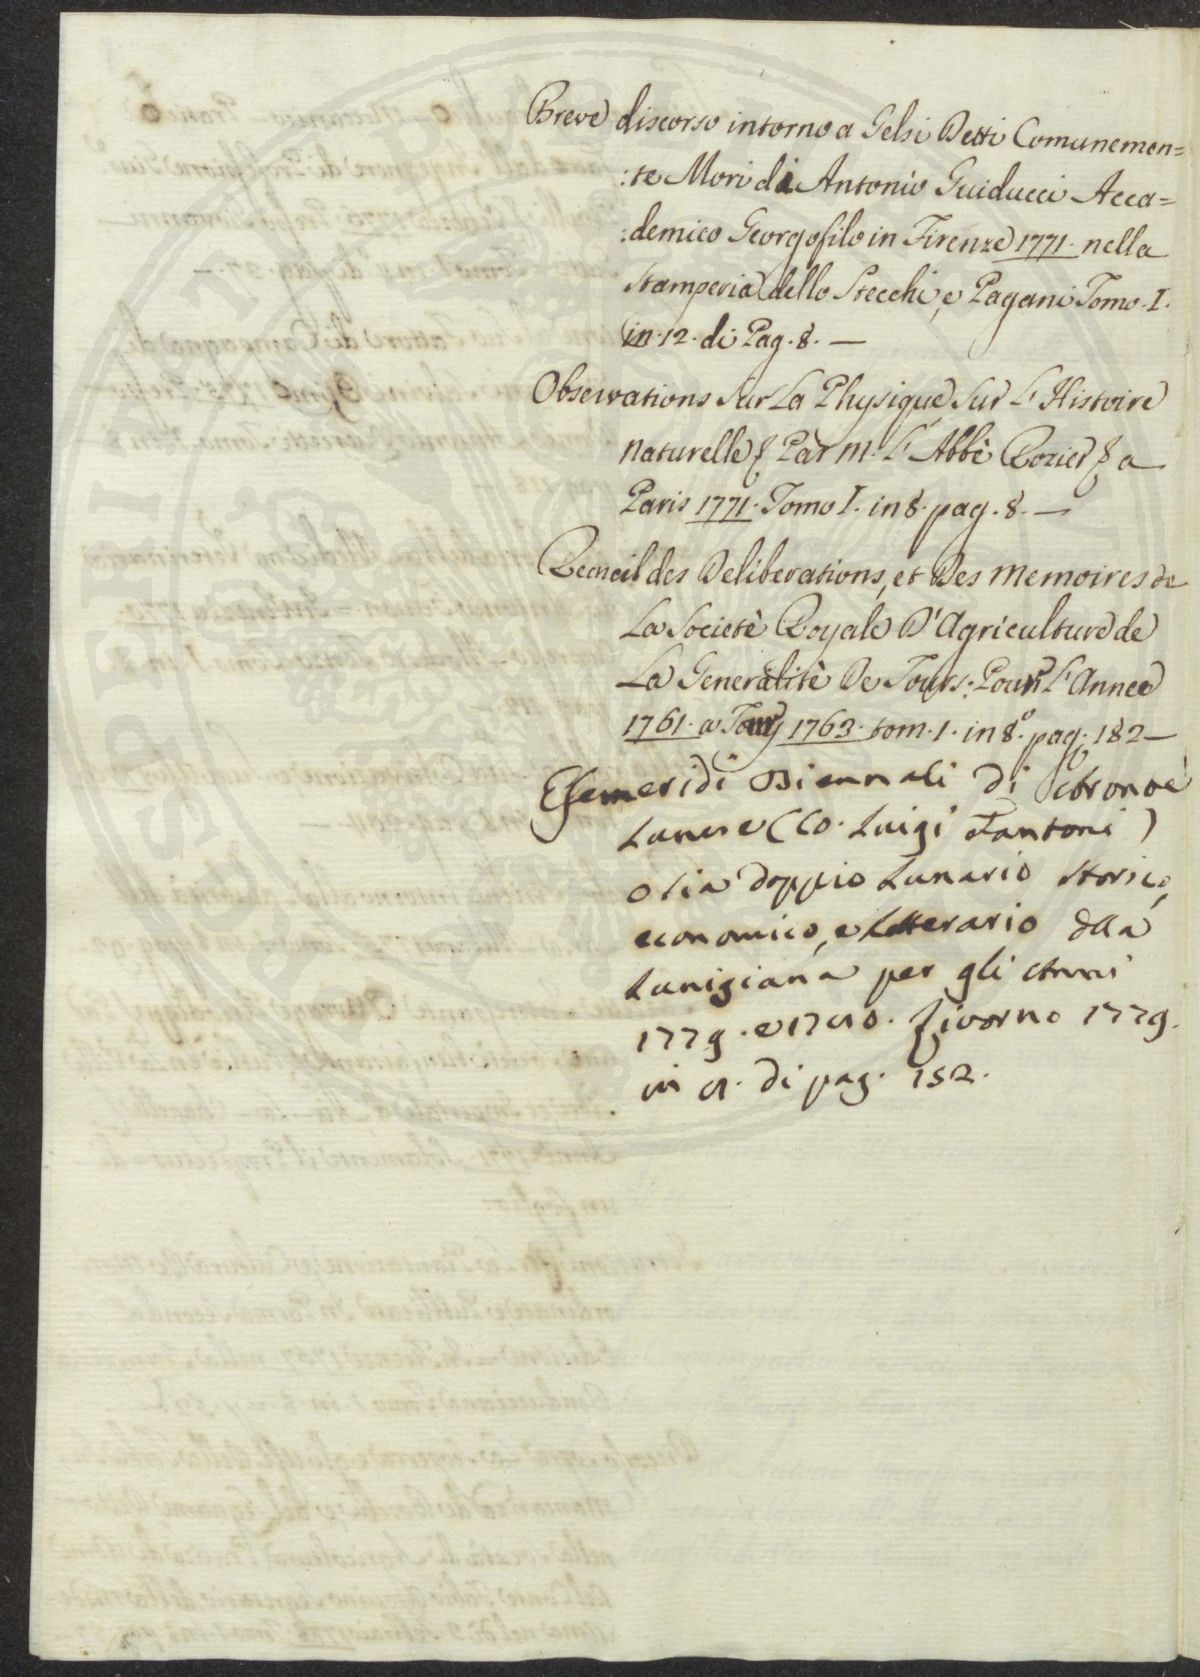 Breve discorso intorno a Gelsi Detti Comunemen=
:te Mori di Antonio Guiducci Acca=
:demico Georgofilo in Firenze 1771. nella
Stamperia dello Stecchi, e Pagani Tomo. I.
in. 12. di Pag. 8. —
Observations sur La Physique, sur L'Histoire
naturelle & Par M. L'Abbè Rozier & a
Paris 1771. Tomo I. in 8. pag. 8. —
Recueil des Deliberations, et Des Memoires de
La Societè Royale D'Agriculture de
La Generalitè De Tours. Pour L'Annee
1761. a Tours 1763. tom. 1. in 8.° pag. 182 —
Efemeridi Biennali di
Lunese (Co. Luigi Fantoni)
osia doppio Lunario storico,
economico, e letterario della
Lunigiana per gli Anni
1779. e 1780. Livorno 1779.
in 8. di pag. 152.